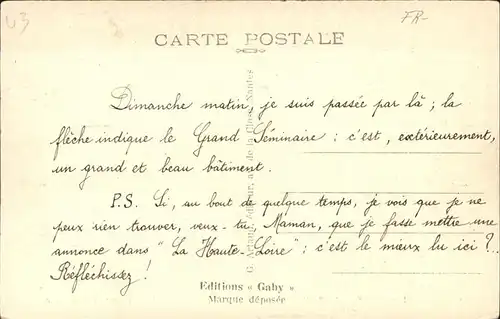 43
FR-
CARTE POSTALE
Dimanche matin, je suis passée par là ; la
flèche indique le Grand Séminaire : c'est, extérieurement,
un grand et beau bâtiment.
P.S. Si, au bout de quelque temps, je vois que je ne
peux rien trouver, veux-tu, Maman, que je fasse mettre une
annonce dans "La Haute-Loire" : c'est le mieux lu ici ?..
Réfléchissez !
Editions « Gaby »
Marque déposée
Nantes